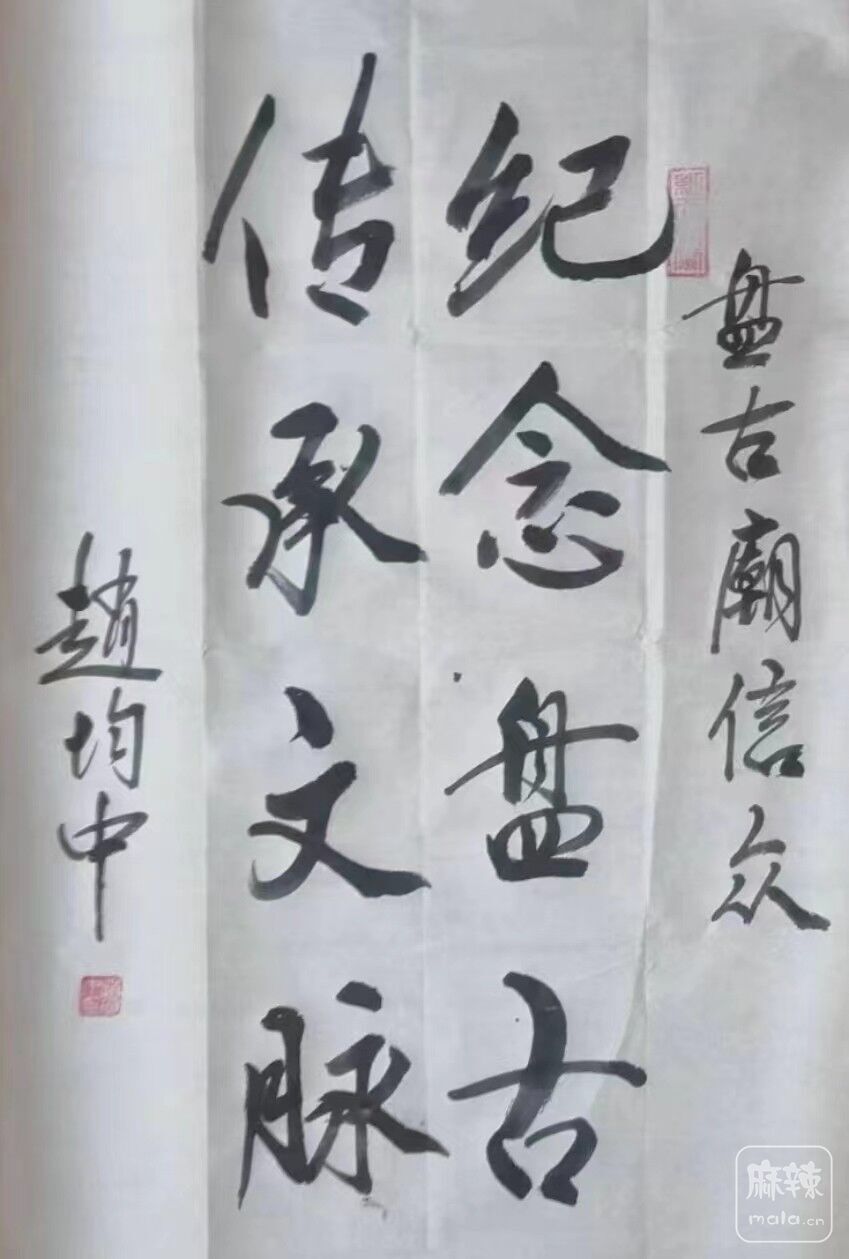 盘古廟信众
纪念盘古
传承文脉
趙均中
麻辣
mala.cn